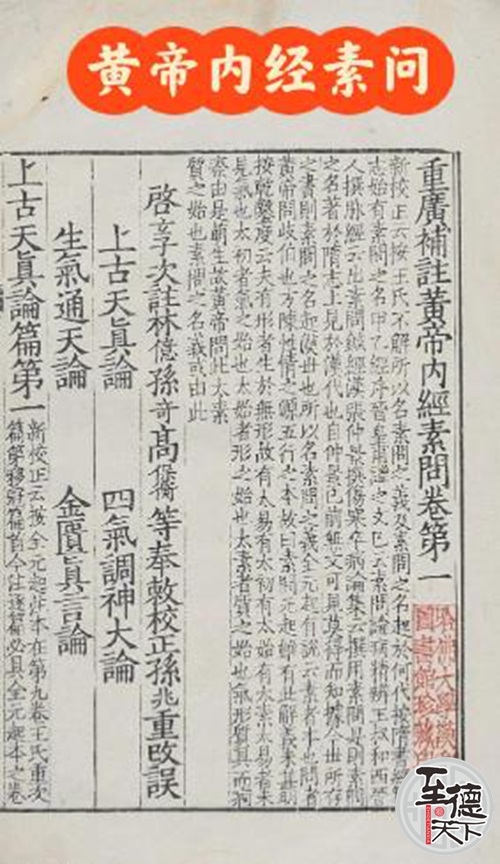 黄帝内经素问
重廣補註黃帝內經素問卷第一
新校正云按王氏不解所以名素問之義及素問之名起於何代按隋書經
志始有素問之名甲乙經序晉皇甫謐之文已云素問論病精辨王叔和西晉
人撰脉經云出素問鍼經漢張仲景撰傷寒卒病論集云撰用素問是則素問
之名著於隋志上見於漢代也自仲景已前無文可見莫得而知據今世所存
之書則素問之名起漢世也所以名素問之義全元起有說云素者本也問者
黃帝問歧伯也方陳性情之源五行之本故曰素問元起雖有此解義未甚明
按乾鑿度云夫有形者生於無形故有太易有太初有太始有太素太易者未
見氣也太初者氣之始也太始者形之始也太素者質之始也氣形質具而痾
瘵由是萌生故黃帝問此太素
質之始也素問之名義或由此
啓玄子次註林億孫竒高保衡等奉敕校正孫兆重改誤
上古天眞論 四氣調神大論
生氣通天論 金匱眞言論
上古天眞論篇第一
新校正云按全元起註本在第九卷王氏重次
篇第移冠篇首今注逐篇必具全元起本之卷
哈佛大學漢和
圖書館珍藏印
至德天下